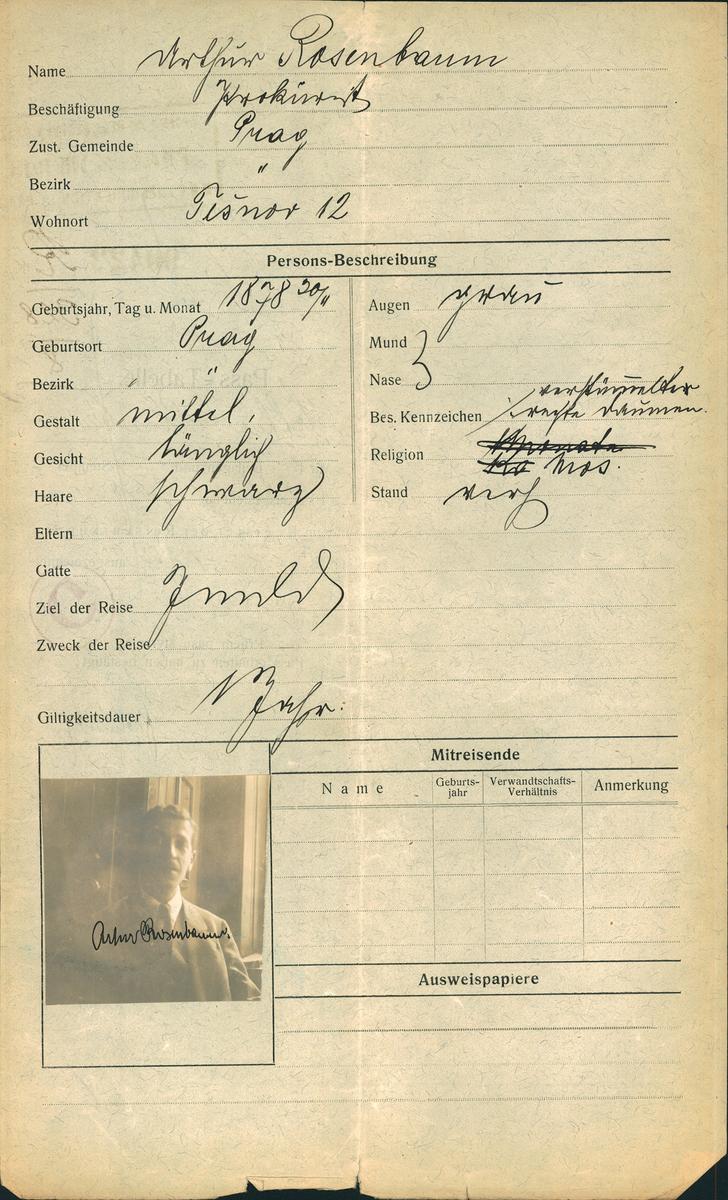 Name Arthur Rosenbaum
Beschäftigung Prokurist
Zust. Gemeinde Prag
Bezirk "
Wohnort Těšnov 12
Persons-Beschreibung
Geburtsjahr, Tag u. Monat 1878 30/11
Geburtsort Prag
Bezirk "
Gestalt mittel,
Gesicht länglich
Haare schwarz
Augen grau
Mund
Nase
Bes. Kennzeichen verstümmelter
rechte Daumen.
Religion
mos.
Stand verh
Eltern
Gatte
Ziel der Reise
Zweck der Reise
Giltigkeitsdauer 1 Jahr.
Arthur Rosenbaum.
Mitreisende
Name Geburts-jahr Verwandtschafts-Verhältnis Anmerkung
Ausweispapiere